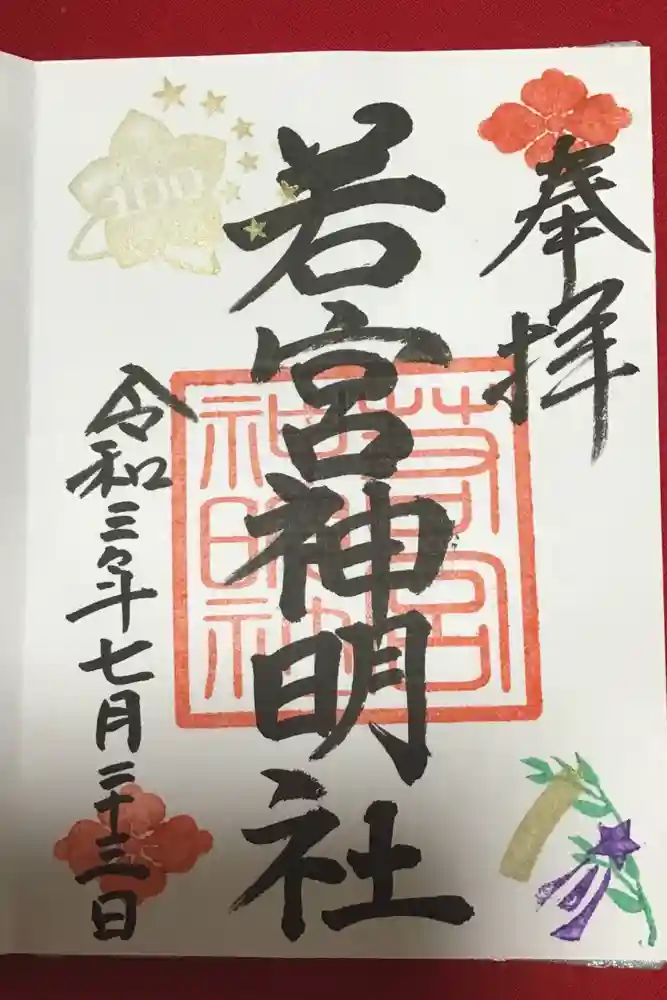 奉拝
若宮神明社
令和三年七月二十三日
100